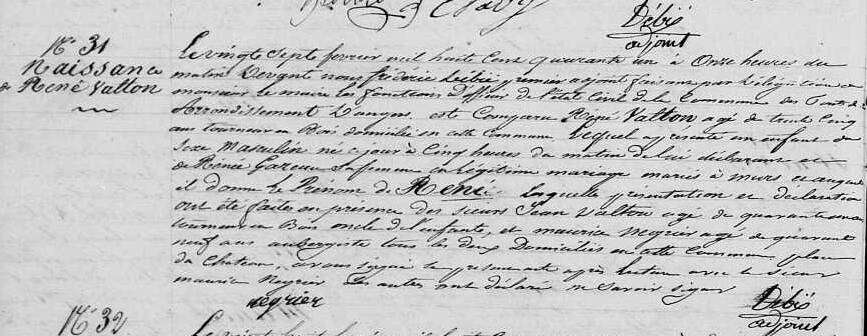 Débié
adjoint
N° 31
Naissance
de René Valton
Le vingt Sept fevrier mil huit Cent quarante un à Onze heures du
matin Devant nous frederic Débié premier adjoint faisant par Délégation de
monsieur le maire les fonctions d'officier de l'état Civil de la Commune des Ponts de Cé
Arrondissement D'angers est Comparu René Valton agé de trente Cinq
ans tourneur en Bois domicilié en cette Commune Lequel a presenté un enfant du
Sexe Masculin né à Cinq heures du matin de lui declarant et
de Renée Gazeau sa femme en légitime mariage mariés à murs et auquel
il donne le Prénom de René Laquelle présentation et déclaration
ont été faites en présence des sieurs Jean Valton agé de quarante ans
tourneur en Bois oncle de l'enfant, et maurice Négrier agé de quarante
neuf ans aubergiste tous les deux Domiciliés en cette Commune place
du Chateau avons signé le present acte après lecture avec le sieur
maurice Negrier Les autres ont déclaré ne savoir signer
négrier
Débié
adjoint
N° 32